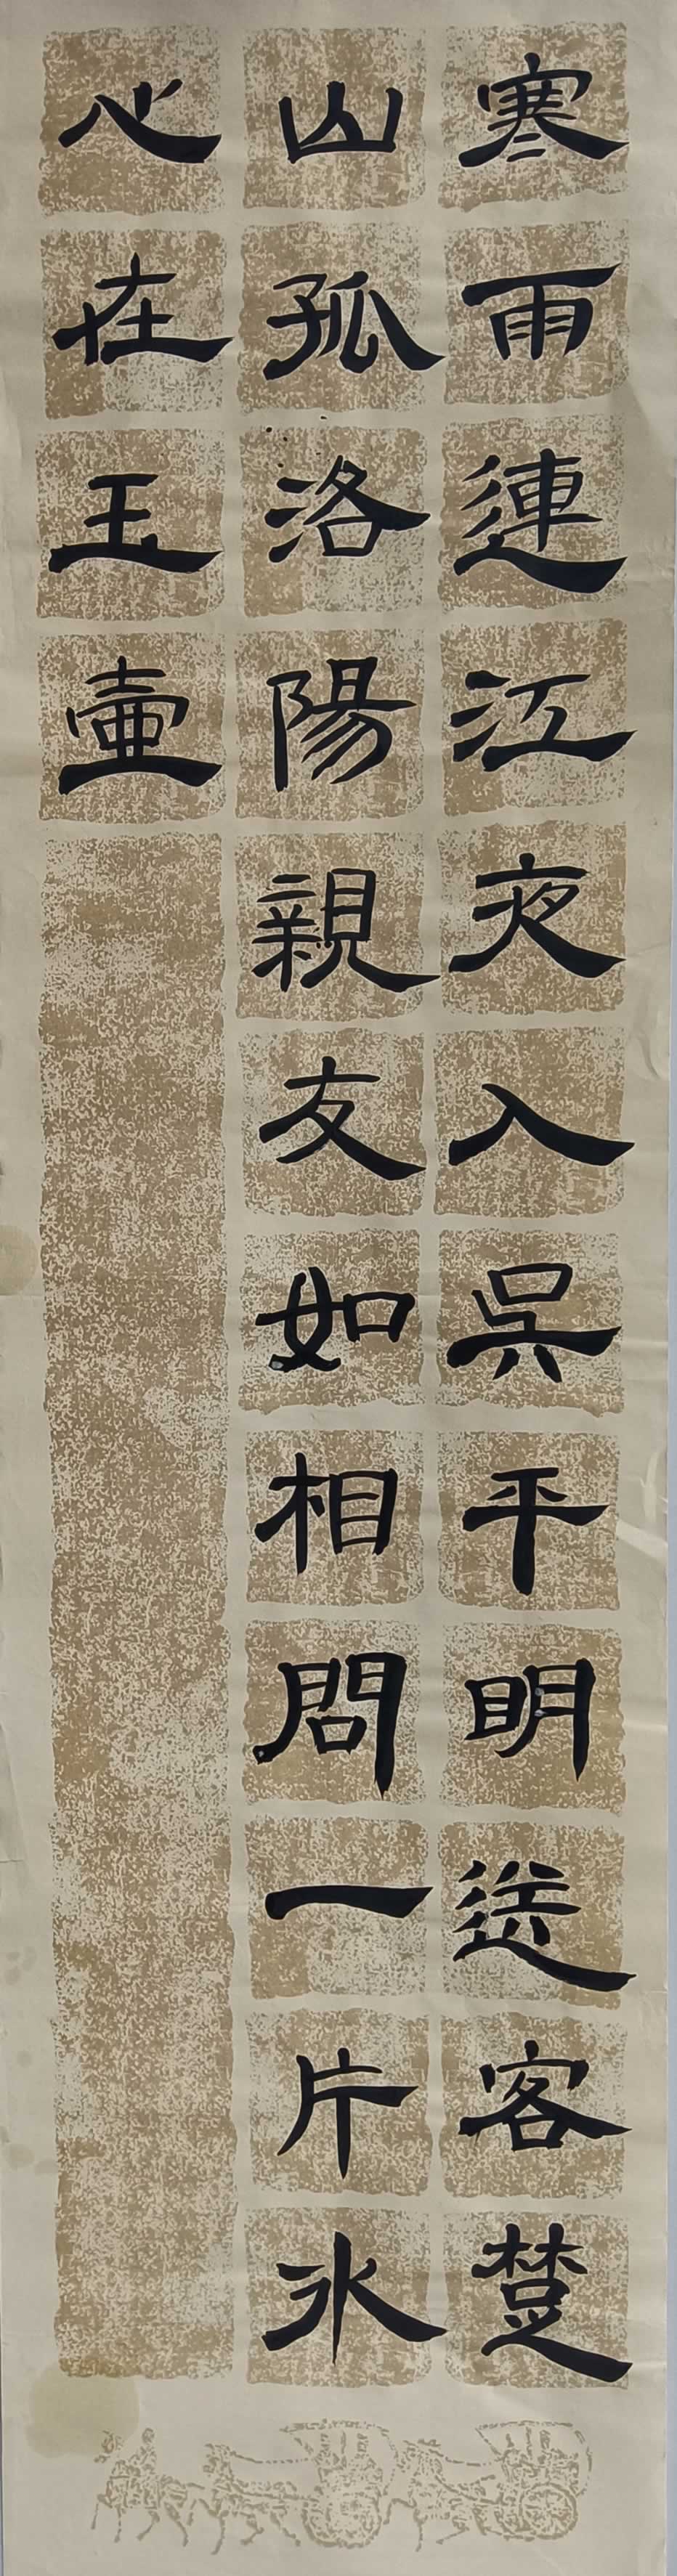 寒雨連江夜入吳平明送客楚
山孤洛陽親友如相問一片冰
心在玉壺